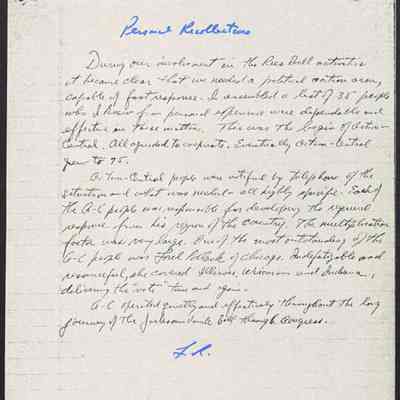 Personal Recollections
During our involvement in the Rees Bill activities
it became clear that we needed a political action arm,
capable of fast response. I assembled a list of 35 people
who I knew from personal experience were dependable and
effective in these matters. This was the begin of Action-
Central. All agreed to cooperate. Eventually Action-Central
grew to 95.
Action-Central people was notified by telephone of the
situation and what was needed - all highly specific. Each of
the A-C people was responsible for developing the required
response from his region of the country. The multiplication
factor was very large. One of the most outstanding of the
A-C people was Pollack of Chicago. Indefatigable and
resourceful, she covered Illinois, Wisconsin and Indiana,
delivering the "vote" time and again.
A-C operated quietly and effectively throughout the long
journey of the Jackson-Vanik Bill through Congress.